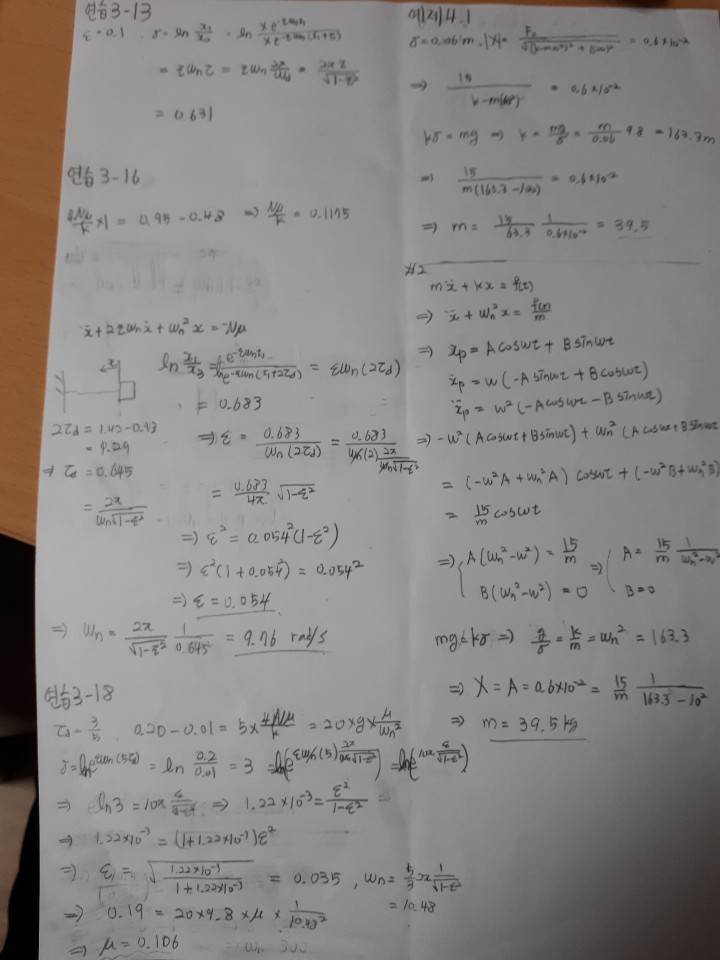 연습3-13
ε=0.1 δ = ln x₁/x₂ = ln
= εωnτ = εωn 2π/ωd = 2πε/√(1-ε²)
= 0.631
연습3-16
×1 = 0.95-0.48 ⇒ Nμ/k = 0.1175
ẍ+2εωnẋ+ωn²x = Nμ
ln x₁/x₃ = = εωn(2τd)
= 0.683
2τd = 1.42-0.13
= 1.29
⇒ τd = 0.645
= 2π/ωn√(1-ε²)
⇒ ε = 0.683/ωn(2τd) = 0.683/ωn(2) 2π/ωn√(1-ε²)
= 0.683/4π √(1-ε²)
⇒ ε² = 0.054²(1-ε²)
⇒ ε²(1+0.054²) = 0.054²
⇒ ε = 0.054
⇒ ωn = 2π/√(1-ε²) 1/0.645 = 9.76 rad/s
연습3-18
τd = 3/5 0.20-0.01 = 5×4Nμ/k = 20×g×μ/ωn²
= ln 0.2/0.01 = 3
⇒ ln3 = 10π ⇒ 1.22×10⁻³ = ε²/1-ε²
⇒ 1.22×10⁻³ = (1+1.22×10⁻³)ε²
⇒ ε = √(1.22×10⁻³/1+1.22×10⁻³) = 0.035, ωn = 5/3 2π 1/√(1-ε²)
= 10.48
⇒ 0.19 = 20×9.8×μ× 1/10.48²
⇒ μ = 0.106
예제4.1
δ = 0.06m, |X| = = 0.6×10⁻²
⇒ 15/ = 0.6×10⁻²
kδ = mg ⇒ k = mg/δ = m/0.06 9.8 = 163.3m
⇒ 15/m(163.3-100) = 0.6×10⁻²
⇒ m = 15/63.3 1/0.6×10⁻² = 39.5
#2
mẍ + kx = f(t)
⇒ ẍ + ωn²x = f(t)/m
⇒ xp = Acosωt + Bsinωt
ẋp = ω(-Asinωt + Bcosωt)
ẍp = ω²(-Acosωt - Bsinωt)
⇒ -ω²(Acosωt+Bsinωt) + ωn²(Acosωt+Bsinωt
= (-ω²A+ωn²A) cosωt + (-ω²B+ωn²B)
= 15/m cosωt
⇒ A(ωn²-ω²) = 15/m ⇒ A = 15/m 1/ωn²-ω²
B(ωn²-ω²) = 0 B=0
mg=kδ ⇒ g/δ = k/m = ωn² = 163.3
⇒ X = A = 0.6×10⁻² = 15/m 1/163.3-10²
⇒ m = 39.5kg